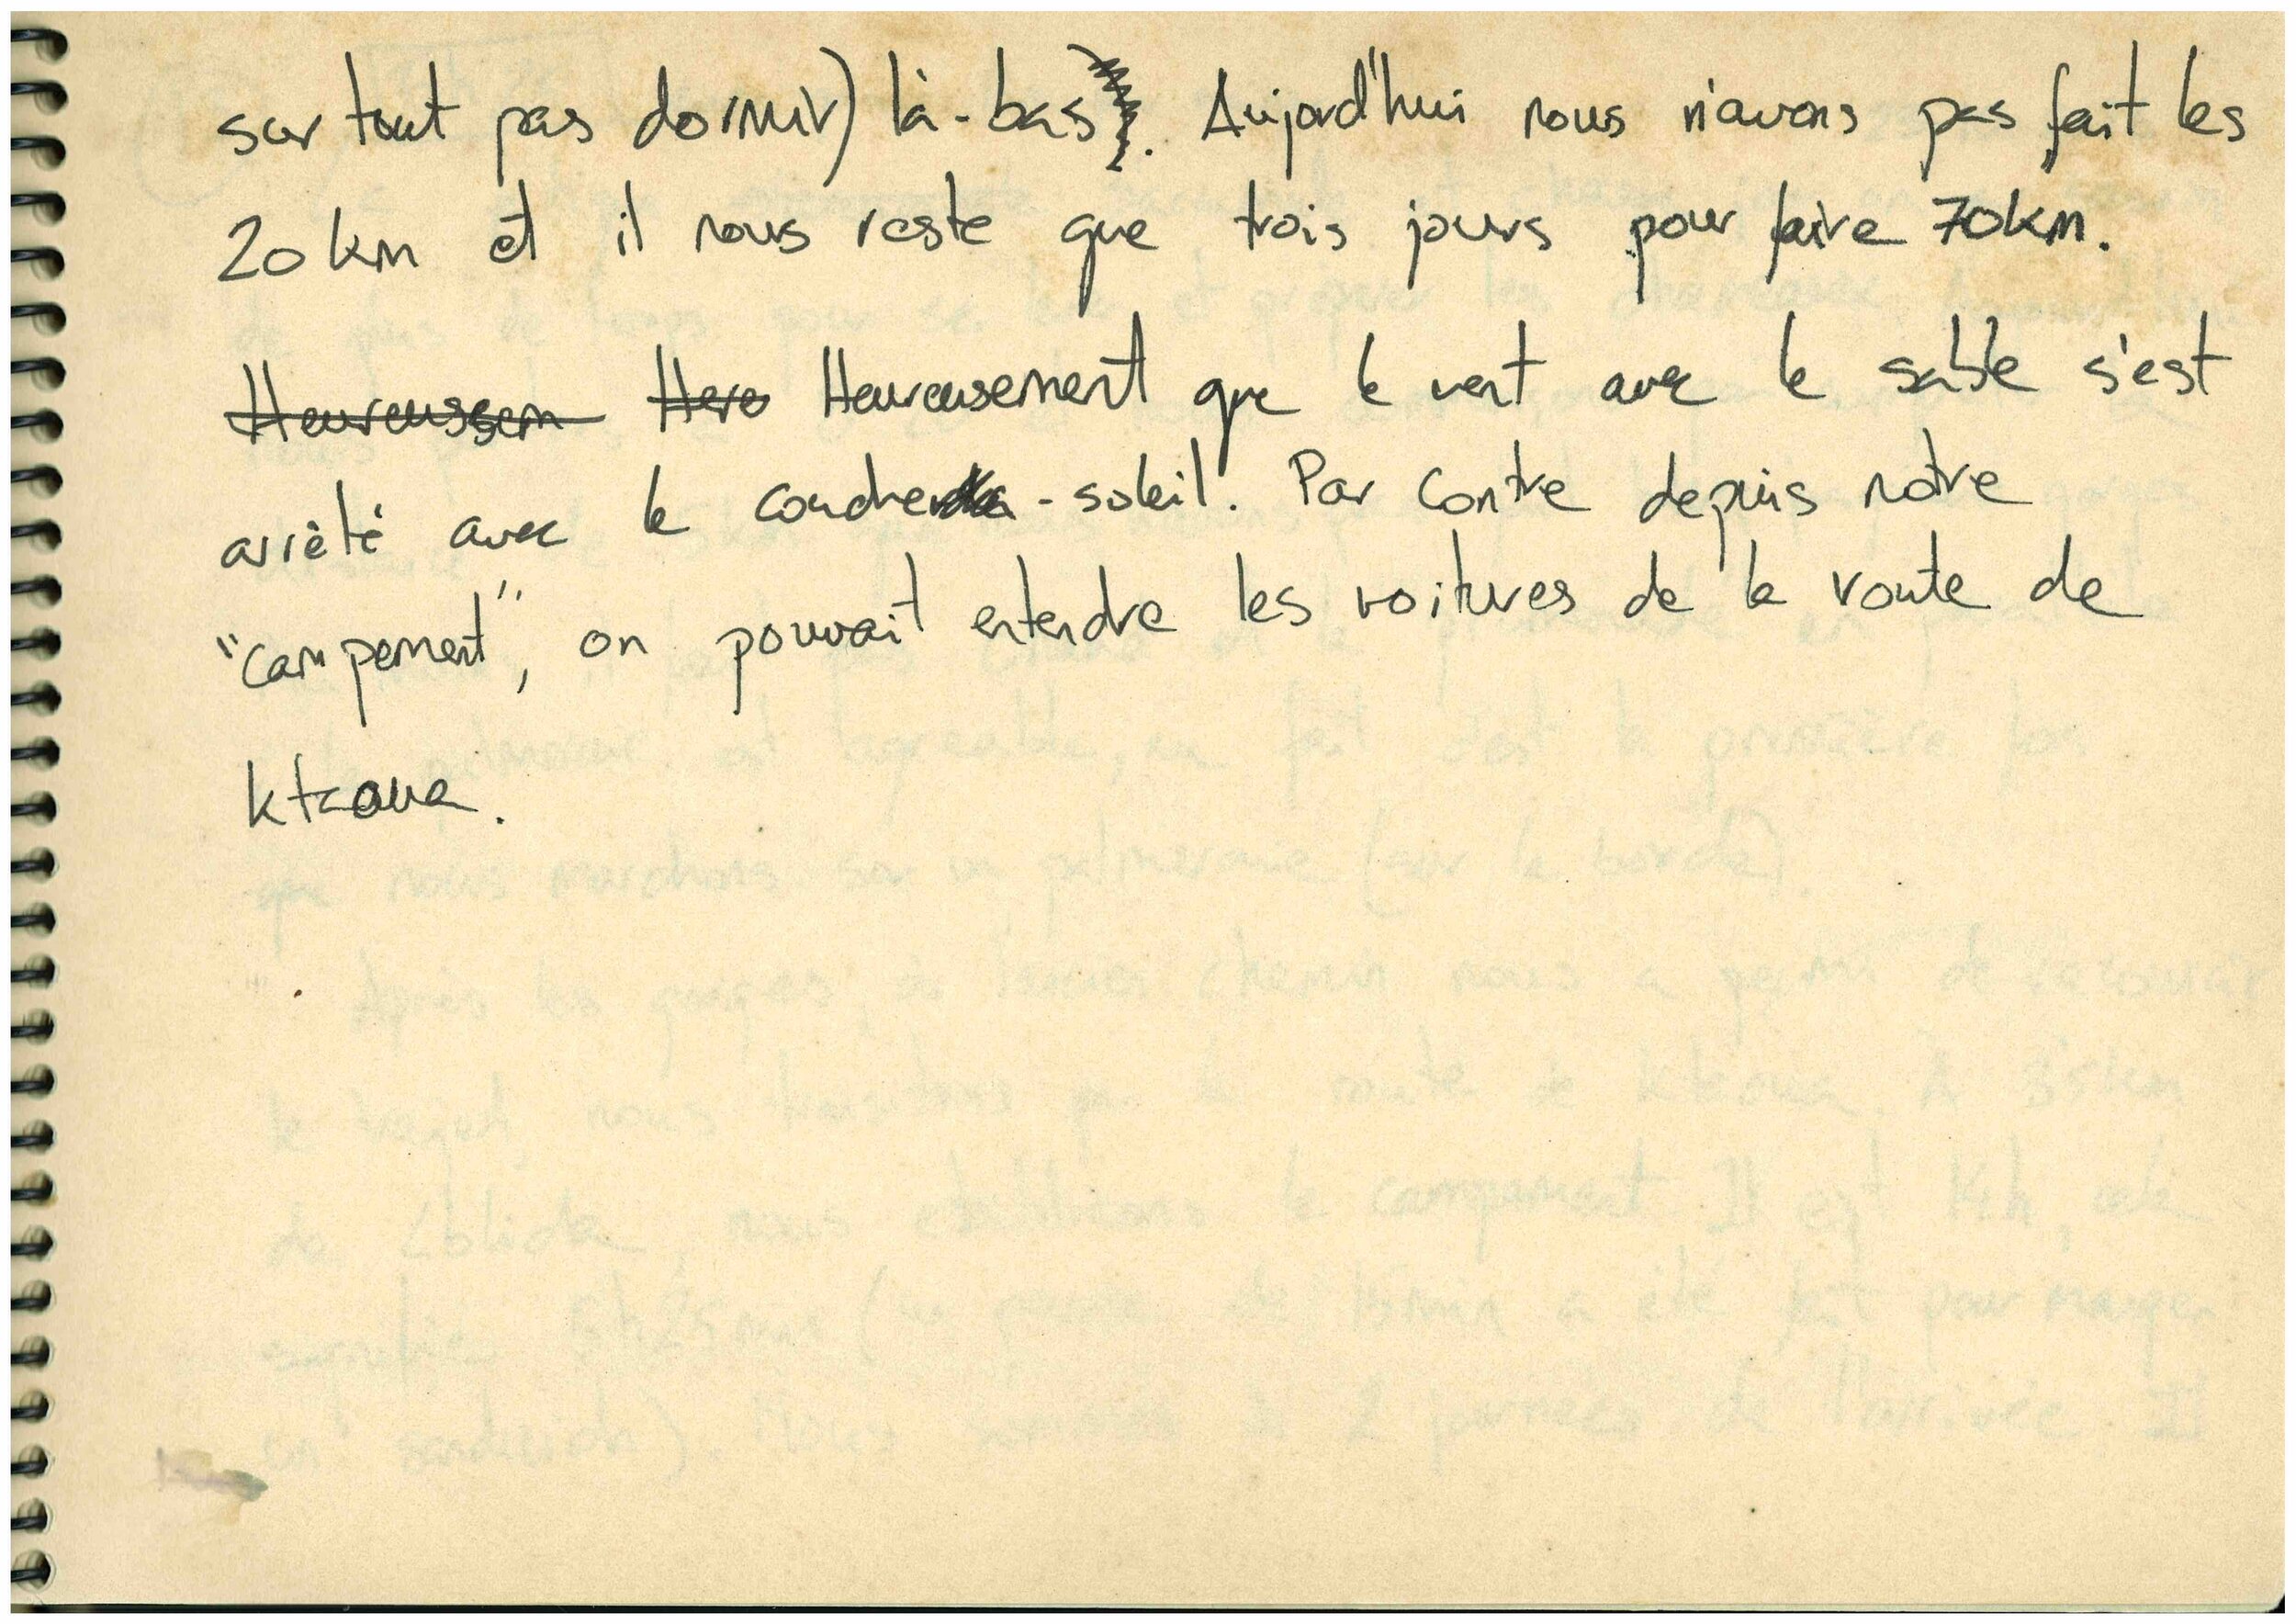 surtout pas dormir) là-bas. Aujord'hui nous n'avons pas fait les
20 km et il nous reste que trois jours pour faire 70km.
Heureussem Hero Heureusement que le vent avec le sable s'est
arrêté avec le coucher-soleil. Par contre depuis notre
"campement", on pouvait entendre les voitures de la route de
Ktaoua.